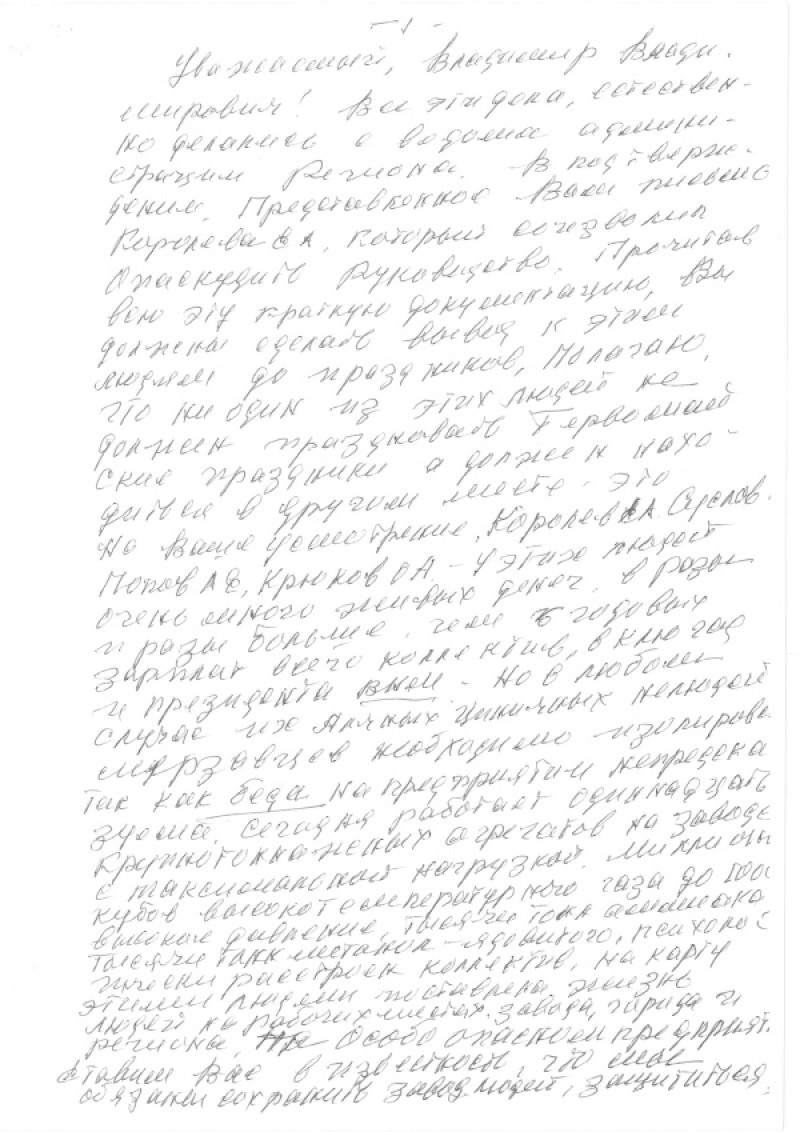 - 1 -
Уважаемый, Владимир Влади-
мирович! Все эти дела, естествен-
но делались с ведома админи-
страции Региона. В подтверж-
дении, Представленное Вам письмо
Королева В А, который соизволил
Опаскудить Руководство. Прочитав
всю эту краткую документацию, Вы
должны сделать вывод к этим
людям до праздников, Полагаю,
что ни один из этих людей не
должен праздновать Первомай
ские праздники а должен нахо-
диться в другом месте - это
на Ваше усмотрение, Королев В.А. Суслов.
Попов А Е, Крюков О А. - У этих людей
очень много живых денег, в разы
и разы больше, чем 5 годовых
зарплат всего коллектива, включая
и президента ВНХК - Но в любом
случае их личных циничных нелюдей
мерзавцев необходимо изолирова
так как беда на предприятии непредска
зуема, сегодня работает одиннадцать
крупнотоннажных агрегатов на заводе
с максимальной нагрузкой. Миллионы
кубов высокотемпературного газа до 1000
высокое давление, тысячи тонн аммиака
тысячи тонн метанол - ядовитого, психоло
гически расстроен коллектив, на карту
этими людьми поставлена жизнь
людей на рабочих местах завода, города и
региона, Особо опасном предприят.
Ставим Вас в известность, что мы
обязаны сохранить завод, людей, защититься,